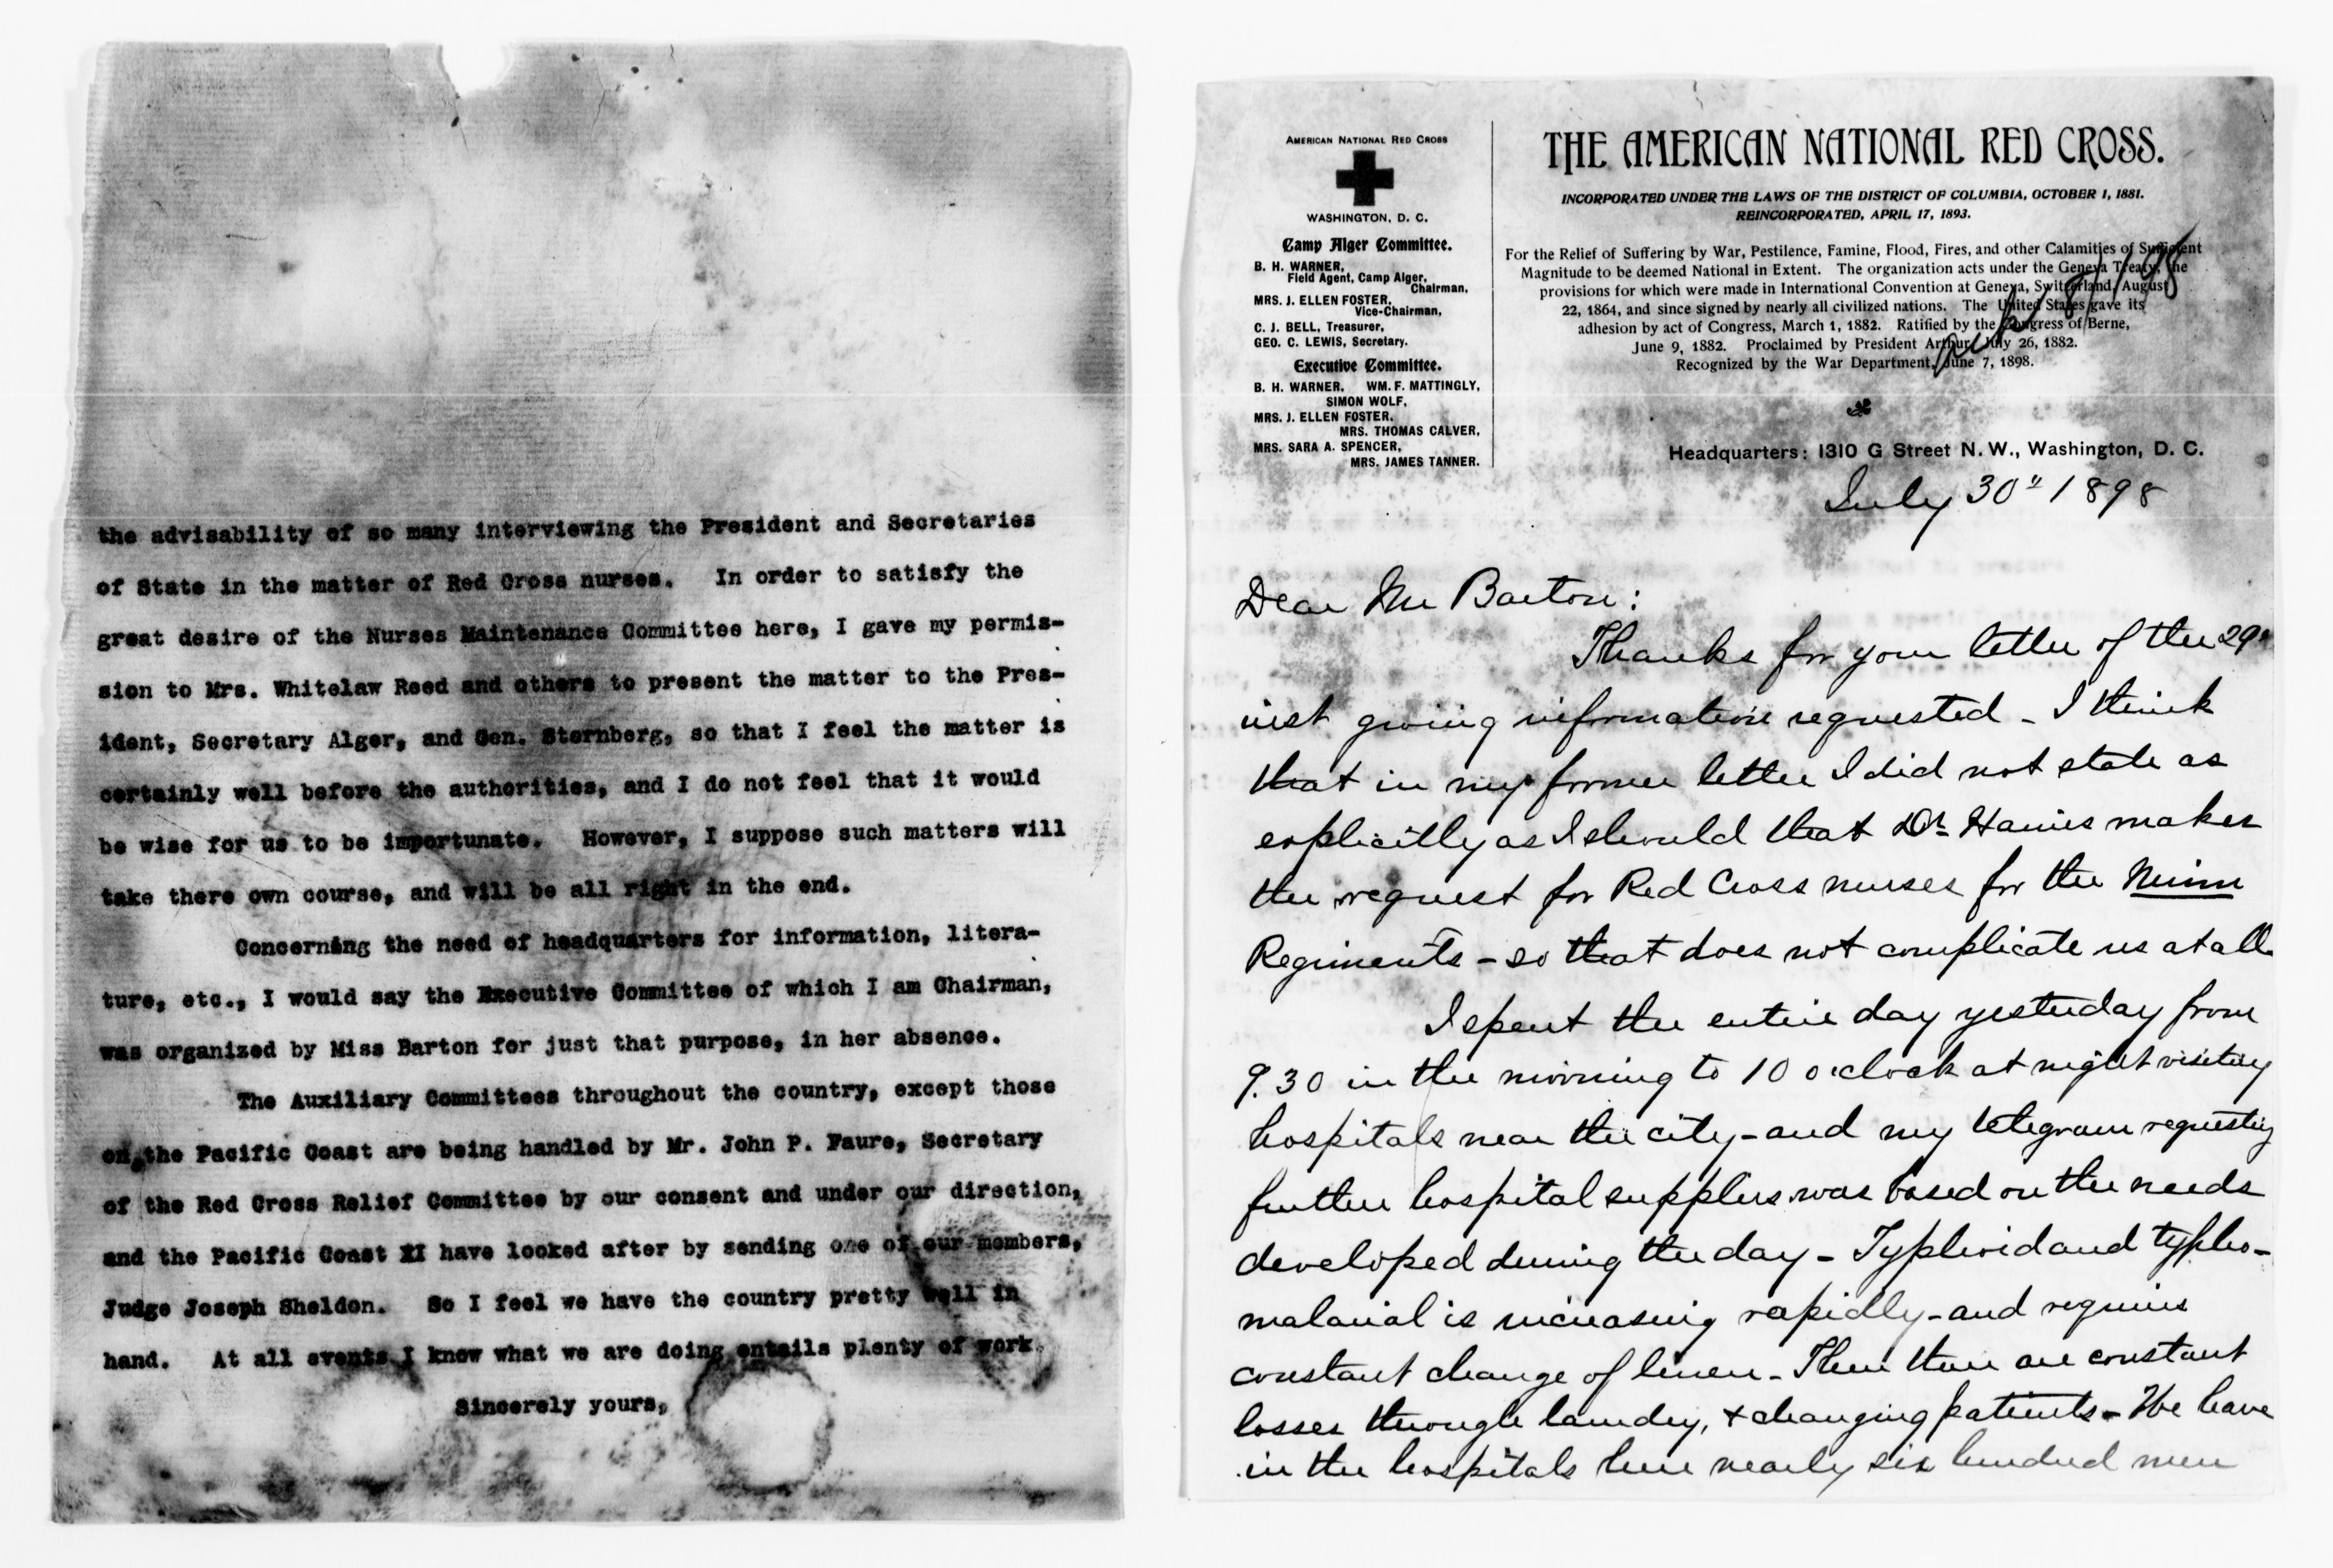 the advisability of so many interviewing the President and Secretaries
of State in the matter of Red Cross nurses. In order to satisfy the
great desire of the Nurses Maintenance Committee here, I gave my permis-
sion to Mrs. Whitelaw Reed and others to present the matter to the Pres-
ident, Secretary Alger, and Gen. Sternberg, so that I feel the matter is
certainly well before the authorities, and I do not feel that it would
be wise for us to be importunate. However, I suppose such matters will
take there own course, and will be all right in the end.
Concerning the need of headquarters for information, litera-
ture, etc., I would say the Executive Committee of which I am Chairman,
was organized by Miss Barton for just that purpose, in her absence.
The Auxiliary Committees throughout the country, except those
on the Pacific Coast are being handled by Mr. John P. Faure, Secretary
of the Red Cross Relief Committee by our consent and under our direction,
and the Pacific Coast II have looked after by sending one of our members,
Judge Joseph Sheldon. So I feel we have the country pretty well in
hand. At all events I know what we are doing entails plenty of work.
Sincerely yours,
AMERICAN NATIONAL RED CROSS
WASHINGTON, D. C.
Camp Alger Committee.
B. H. WARNER,
Field Agent, Camp Alger,
Chairman,
MRS. J. ELLEN FOSTER,
Vice-Chairman,
C. J. BELL, Treasurer,
GEO. C. LEWIS, Secretary.
Executive Committee.
B. H. WARNER, WM. F. MATTINGLY,
SIMON WOLF,
MRS. J. ELLEN FOSTER,
MRS. THOMAS CALVER,
MRS. SARA A. SPENCER,
MRS. JAMES TANNER.
THE AMERICAN NATIONAL RED CROSS.
INCORPORATED UNDER THE LAWS OF THE DISTRICT OF COLUMBIA, OCTOBER 1, 1881.
REINCORPORATED, APRIL 17, 1893.
For the Relief of Suffering by War, Pestilence, Famine, Flood, Fires, and other Calamities of Sufficient
Magnitude to be deemed National in Extent. The organization acts under the Geneva Treaty, the
provisions for which were made in International Convention at Geneva, Switzerland, August
22, 1864, and since signed by nearly all civilized nations. The United States gave its
adhesion by act of Congress, March 1, 1882. Ratified by the Congress of Berne,
June 9, 1882. Proclaimed by President Arthur, July 26, 1882.
Recognized by the War Department, June 7, 1898.
8/1/98
Headquarters: 1310 G Street N. W., Washington, D. C.
July 30" 1898
Dear Mr Barton:
Thanks for your letter of the 29"
inst giving information requested - I think
that in my former letter I did not state as
explicitly as I should that Dr. Haines makes
the request for Red Cross nurses for the Minn
Regiments - so that does not complicate us at all
I spent the entire day yesterday from
9.30 in the morning to 10 o'clock at night visiting
hospitals near the city - and my telegram requesting
further hospital supplies was based on the needs
developed during the day - Typhoid and typho-
malarial is increasing rapidly - and requires
constant change of linen - Then there are constant
losses through laundry, + changing patients - We have
in the hospitals here nearly six hundred men